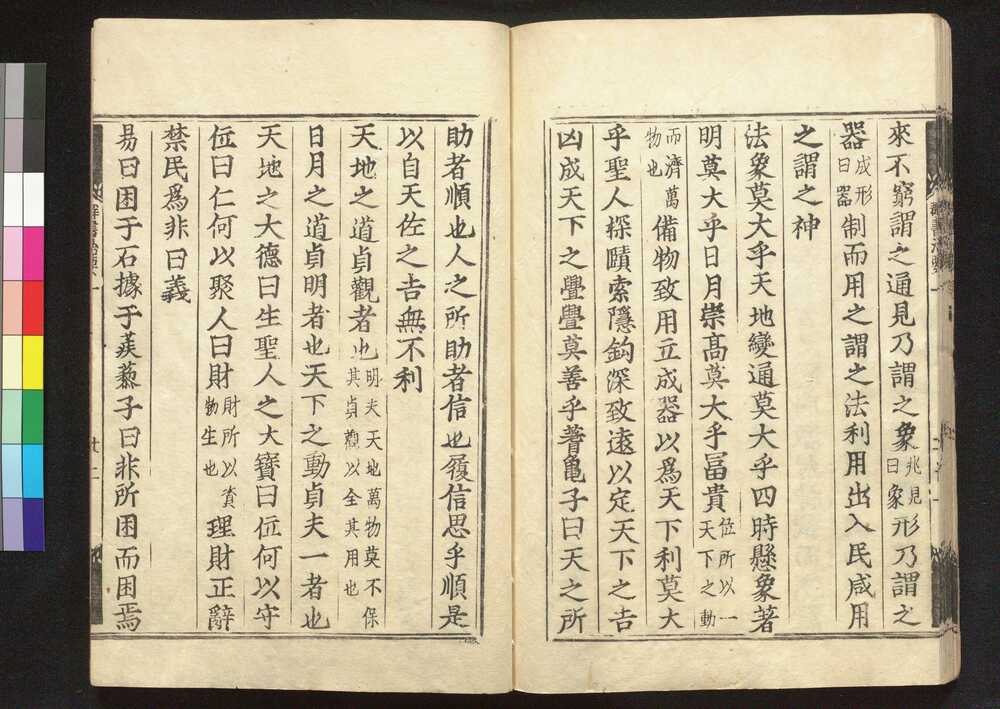 來不窮謂之通見乃謂之象兆見曰象形乃謂之
器成形曰器制而用之謂之法利用出入民咸用
之謂之神
法象莫大乎天地變通莫大乎四時懸象著
明莫大乎日月崇髙莫大乎冨貴位所以一天下之動
而濟萬物也備物致用立成器以爲天下利莫大
乎聖人探賾索隱鈎深致遠以定天下之吉
凶成天下之亹亹莫善乎蓍龜子曰天之所
助者順也人之所助者信也履信思乎順是
以自天佐之吉無不利
天地之道貞觀者也明夫天地萬物莫不保其貞觀以全其用也
日月之道貞明者也天下之動貞夫一者也
天地之大德曰生聖人之大寶曰位何以守
位曰仁何以聚人曰財財所以資物生也理財正辭
禁民爲非曰義
易曰困于石據于蒺藜子曰非所困而困焉
群書治要一